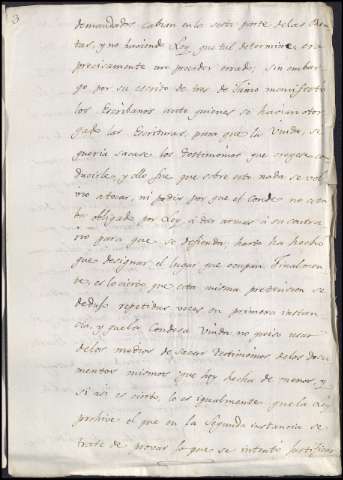 3
demandados cabian en la sexta parte de las Ren
tas, y no haciendo Ley, que tal determine, era
precisamente un proceder errado; sin embar
go por su escrito de tres de Junio manifestó
los Escribanos ante quienes se havian otor
gado las Escrituras, para que la Viuda, si
queria sacase los Testimonios que creyese con
ducirle, y ello fue que sobre esto nada se vol
vio a tocar, ni podia por que el Conde no esta
ba obligado por Ley, á dar armas á su contra
rio para que se defienda; harto ha hecho
que designar el lugar que ocupan. Finalmen
te, es lo cierto que esta misma pretension se
dedujo repetidas veces en primera instan
cia, y que la Condesa Viuda no quiso usar
de los medios de sacar Testimonios de los docu
mentos mismos que hoy hecha de menos, y
si asi es cierto, lo es igualmente que la Ley
prohive el que en la Segunda instancia se
trate de provar lo que se intentó justificar